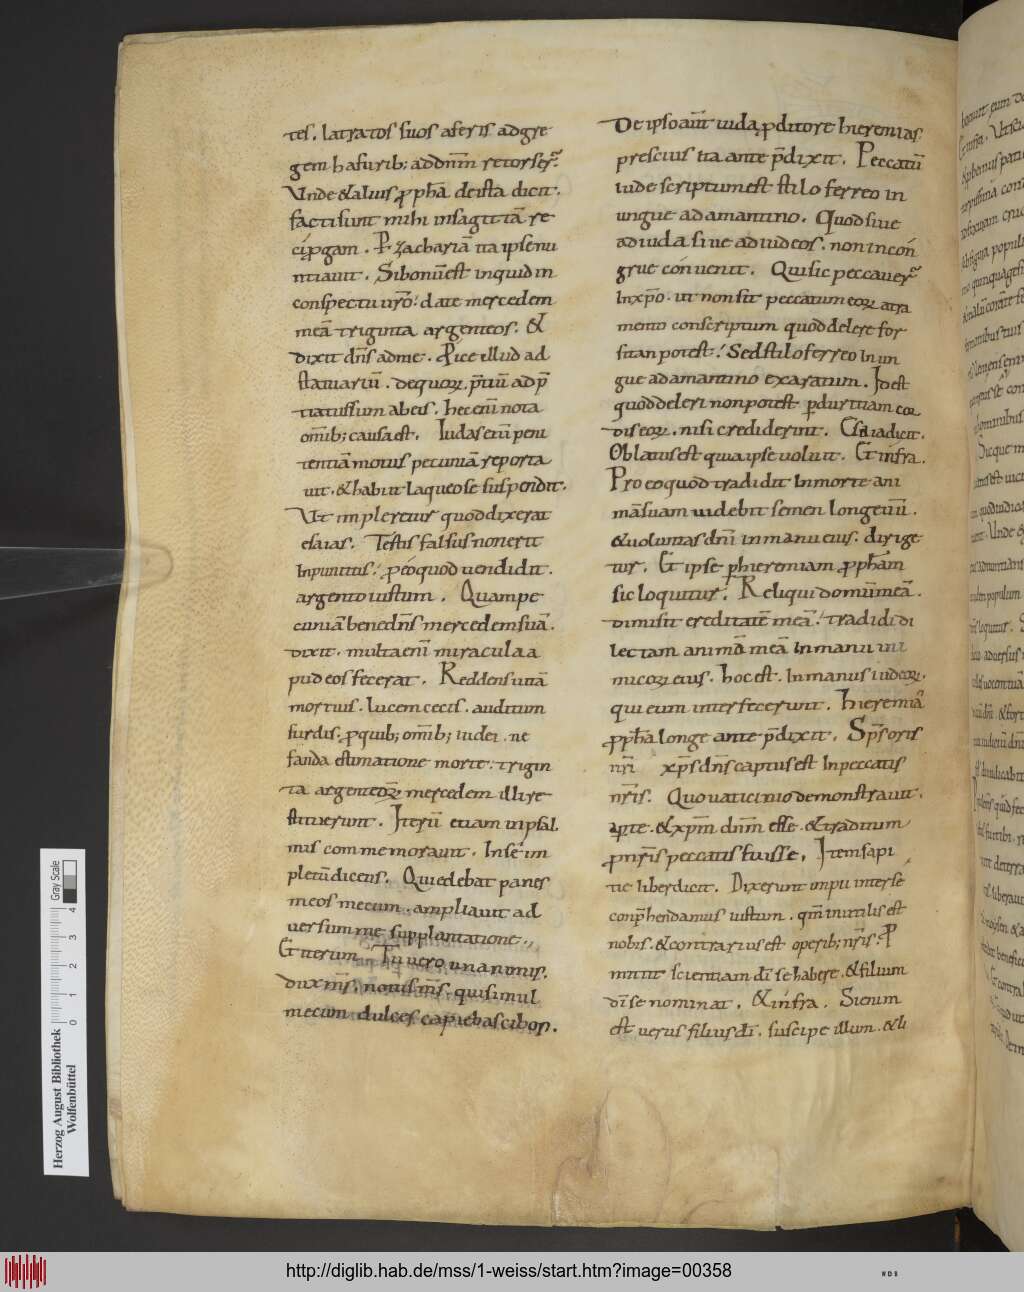 tes. latratos suos aferis adgre
gem hafurib; addnm̄ retorser̄.
Vnde &alius ꝓph̄a deista dicit.
facti sunt mihi insagittā re
ciꝓgam. P zachariā ita ipsenu
ntiauit. Sibonū est inquid in
conspectu ur̄o. date mercedem
meā triginta argenteos. &
dixit dn̄s adme. Pice illud ad
statuariū. dequoꝝ p̄tiū ad p̄
tiatussum abeis. hecenī nota
om̄ib; causa est. Iudas etū peni
tentiā motus pecuniā reporta
uit. & habiit laqueo se suspendit.
Vt impleretur quod dixerat
esaias. Testis falsus non erit
Inpunitus. ꝓeo quod uendidit.
argento iustum. Quam pe
cuniā bene dn̄s mercedem suā.
dixit. multa enī miracula a
pud eos fecerat. Reddens uitā
mortuis. lucem cecis. auditum
surdis. ꝓquib; om̄ib; iudei. ne
fanda estimatione morte. trigin
ta argenteoꝝ mercedem illi re
stituerunt. Iterū etiam in psal
mis commemorauit. In sem̄
pletū dicens. Qui edebat panes
meos mecum. ampliauit ad
uersum me supplantatione.
Et iterum. Tu uero unanimis.
dux m̄s. notus m̄s. qui simul
mecum dulces capiebas cibos.
De ipso aūt iuda ꝓditore hieremias
prescius ita ante p̄dixit. Peccatū
iude scriptum est stilo ferreo in
ungue adamantino. Quod siue
ad iuda siue ad iudeos. non incon
grue conuenit. Qui sic peccauer̄
In xp̄o. ut non sit peccatum eoꝝ atra
mento conscriptum quod delere for
sitan potest. Sed stilo ferreo In un
gue adamantino exaratum. Id est
quod deleri non potest ꝑduritiam cor
dis eoꝝ. nisi crediderint. Esaia dicit.
Oblatus est quia ipse uoluit. Et infra.
Pro eo quod tradidit In morte ani
mā suam uidebit semen longeuū.
& uoluntas dn̄i in manu eius. dirige
tur. Et ipse ꝑ hieremiam ꝓph̄am
sic loquitur. Reliqui domū meā.
dimisit ereditatē meā. tradidi di
lectam animā meā In manu ini
micoꝝ eius. hoc est. In manus iudeoꝝ.
qui eum interfecerunt. hieremia
ꝓph̄a longe ante p̄dixit. Sp̄s oris
nr̄i xp̄s dn̄s captus est In peccatis
nr̄is. Quo uaticinio demonstrauit.
aꝑte. & xp̄m dn̄m esse. & traditum
ꝓ nr̄is peccatis fuisse. Item sapi
tie liber dicit. Dixerunt impii inter se
conp̄hendamus iustum. qm̄ inutilis est
nobis. & contrarius est operib; nr̄is. P
mittit scientiam dī se habere. & filium
dī se nominat. & infra. Si enim
est uerus filius dī. suscipe illum. & li
Herzog August Bibliothek
Wolfenbüttel
Gray Scale
0 1 2 3 4
http://diglib.hab.de/mss/1-weiss/start.htm?image=00358